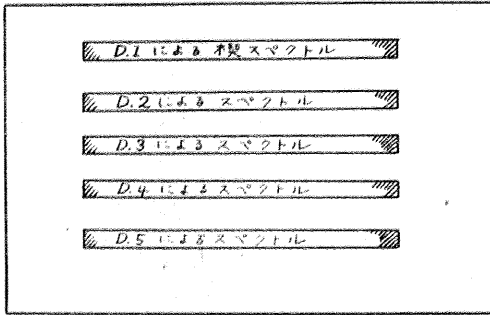 D.1 による 楔スペクトル
D.2 による スペクトル
D.3 による スペクトル
D.4 による スペクトル
D.5 による スペクトル